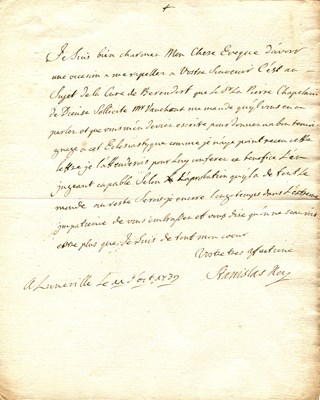 +
Je Suis bien charmé Mon Chere Eveque d'avoir
une occasion a me rapeller a Vostre Souvenir C'est au
Sujet de la Cure de que le Sr La Pierre Chapelain
de Sollicite Mr me mande qu'il vous en a
parler et que vous m'en devriez escrire pour donner un bon temoi
gnage a cet Eclesiastique comme je n'ay point recu cette
lettre je l'attenderois pour luy conferer ce benefice l'en
jugeant capable Selon l'aprobation qu'on de tout le
monde au reste Seray je encore longtemps dans l'extreme
impatience de vous embrasser et vous dire qu'on ne sauroit
estre plus que je Suis de tout mon coeur
Vostre tres afectioné
Stanislas Roy
A Luneville Le 11 d'oct: 1739